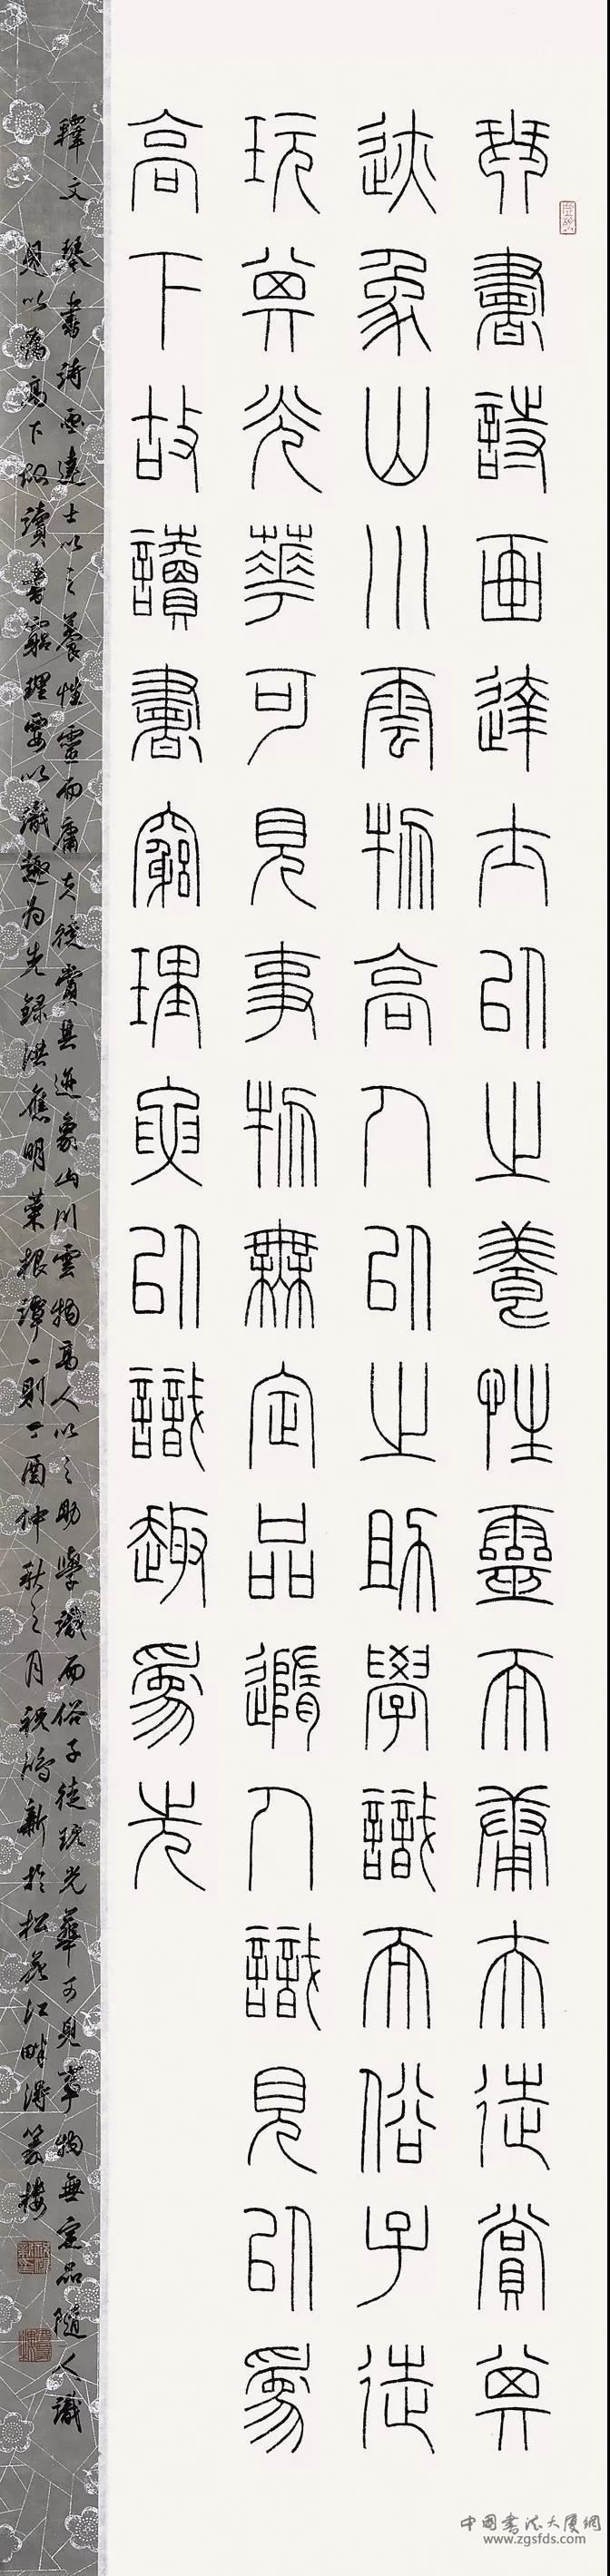 琴書詩畫達士以之養性靈而庸夫徒賞其
迹象山川雲物高人以之助學識而俗子徒
玩其光華可見事物無定品隨人識見以為
高下故讀書窮理要以識趣為先
釋文 琴書詩畫達士以之養性靈而庸夫徒賞其迹象山川雲物高人以之助學識而俗子徒玩光華可見事物無定品隨人識
見以為高下故讀書窮理要以識趣為先錄洪應明菜根譚一則丁酉仲秋之月祝鴻新於松花江畔得篆樓
中國書法大廈網
www.zgsfds.com